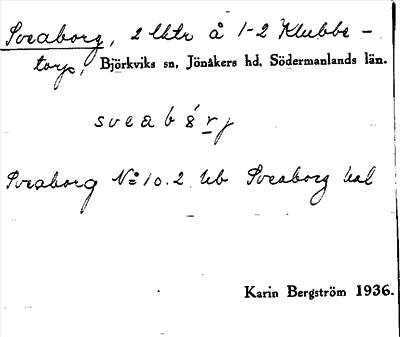 Sveaborg, 2 lhtr å 1-2 Klubbe-
torp, Björkviks sn, Jönåkers hd, Södermanlands län.
Sveaborg No 10.2 Sveaborg
Karin Bergström 1936.